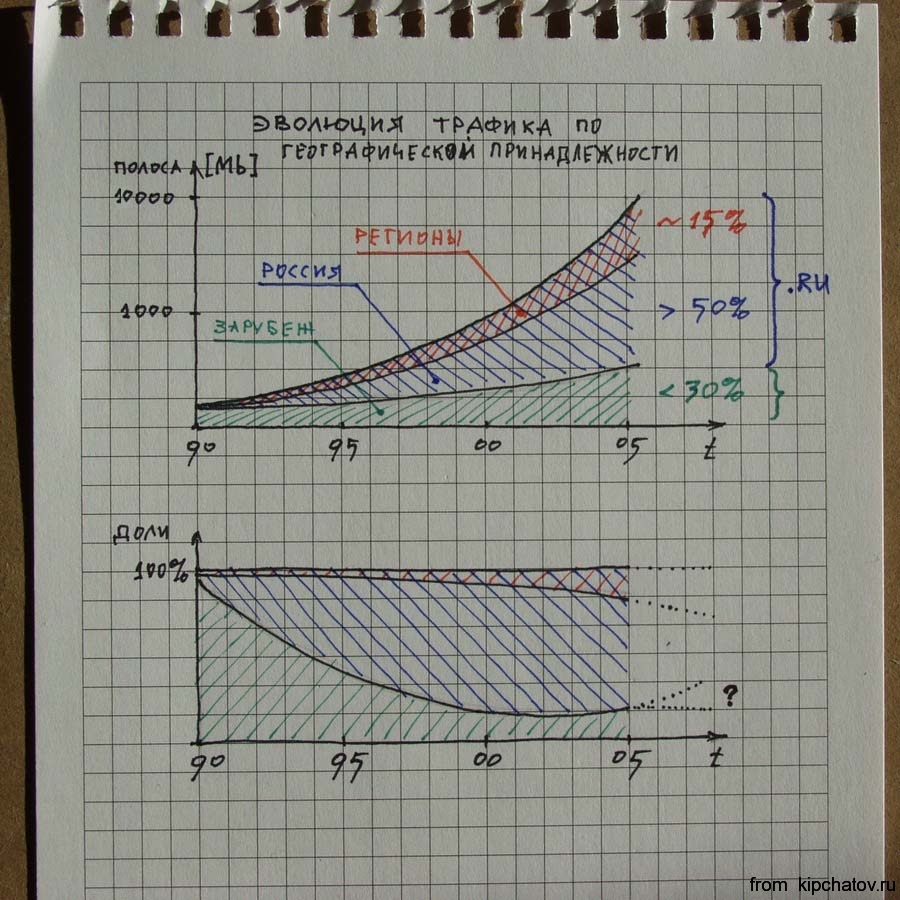 ЭВОЛЮЦИЯ ТРАФИКА ПО
ГЕОГРАФИЧЕСКОЙ ПРИНАДЛЕЖНОСТИ
ПОЛОСА [Mb]
10000
~ 15%
РЕГИОНЫ
РОССИЯ
.RU
1000
> 50%
ЗАРУБЕЖ
< 30%
90 95 00 05 t
ДОЛИ
100%
?
90 95 00 05 t
from kipchatov.ru